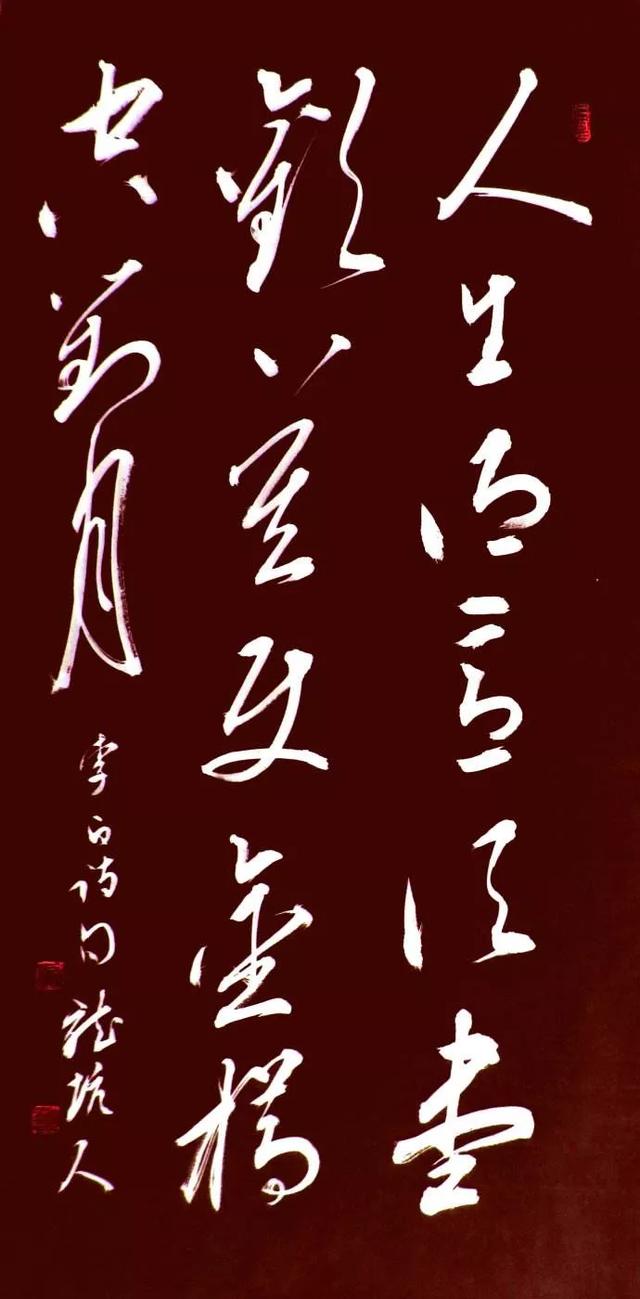 人生得意須盡
歡莫使金樽
空對月
李白詩句 龍坑人